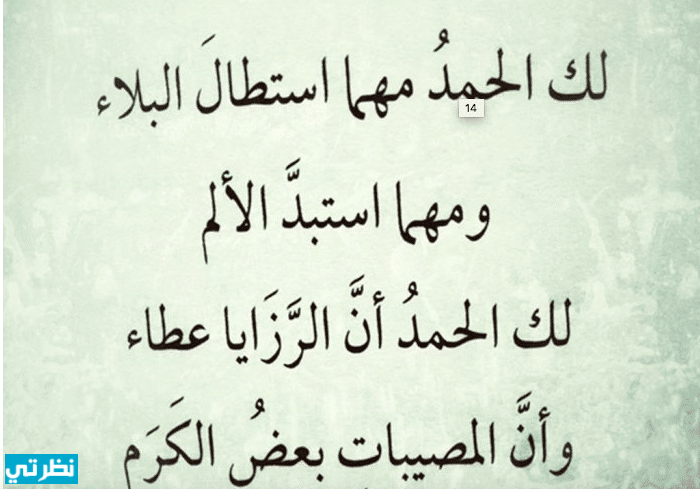 لك الحمدُ مهما استطالَ البلاء
14
ومهما استبدَّ الألم
لك الحمدُ أنَّ الرَّزَايا عطاء
وأنَّ المصيبات بعضُ الكَرَم
نظرتي